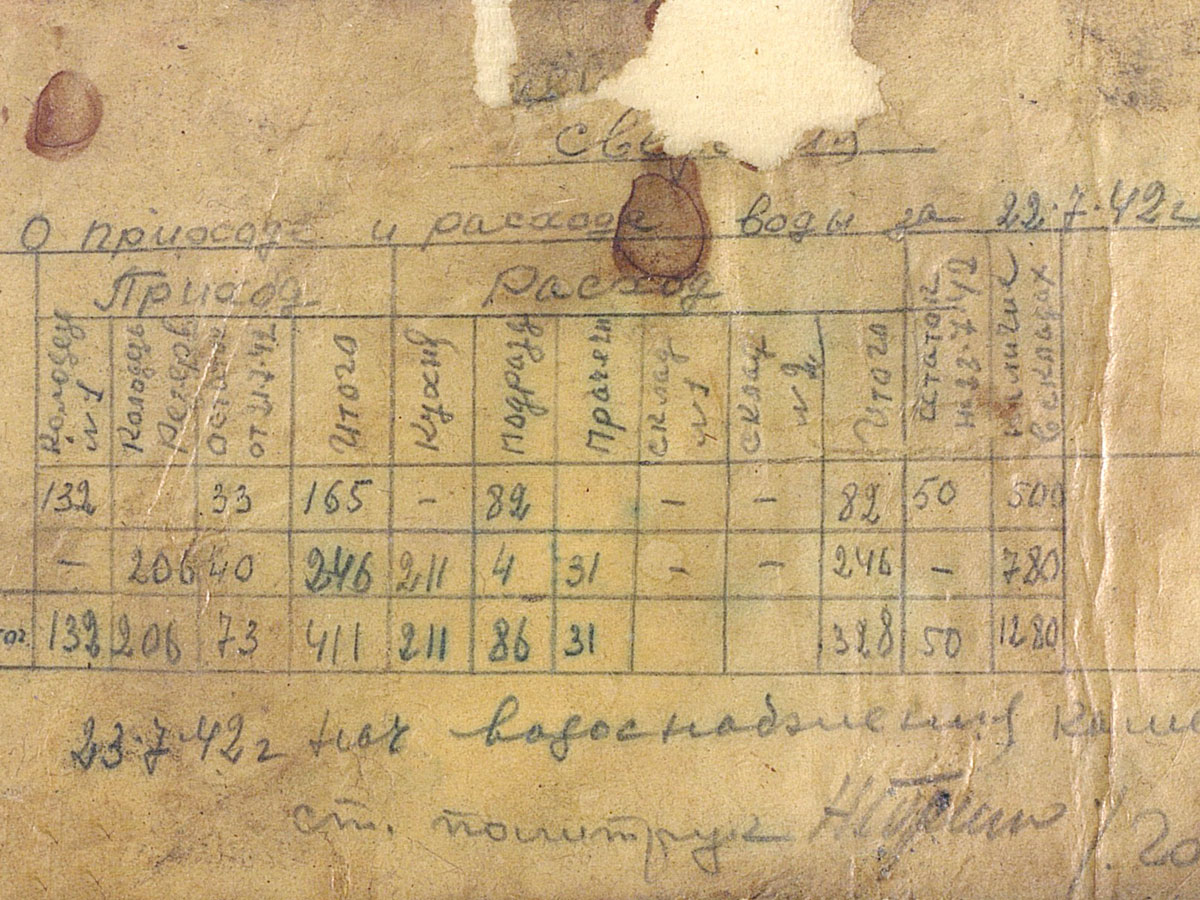 О приходе и расходе воды за 22·7·42г
Приход Расход
Колодец №1 Колодец Резерв Остаток от 21·7·42 Итого Кухня Подразд Прачечн склад №1 склад №2 Итого остаток на 23·7·42 наличие в складах
132 33 165 - 82 - - 82 50 500
- 206 40 246 211 4 31 - - 246 - 780
тог. 132 206 73 411 211 86 31 328 50 1280
23·7·42г нач водоснабжения
ст. политрук